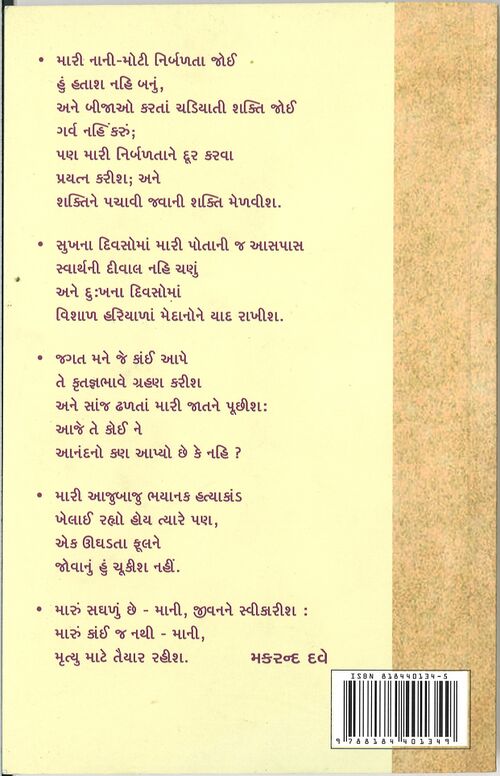 • મારી નાની-મોટી નિર્બળતા જોઈ
હું હતાશ નહિ બનું,
અને બીજાઓ કરતાં ચડિયાતી શક્તિ જોઈ
ગર્વ નહિં કરું;
પણ મારી નિર્બળતાને દૂર કરવા
પ્રયત્ન કરીશ; અને
શક્તિને પચાવી જવાની શક્તિ મેળવીશ.
• સુખના દિવસોમાં મારી પોતાની જ આસપાસ
સ્વાર્થની દીવાલ નહિ ચણું
અને દુઃખના દિવસોમાં
વિશાળ હરિયાળાં મેદાનોને યાદ રાખીશ.
• જગત મને જે કાંઈ આપે
તે કૃતજ્ઞભાવે ગ્રહણ કરીશ
અને સાંજ ઢળતાં મારી જાતને પૂછીશ:
આજે તે કોઈ ને
આનંદનો કણ આપ્યો છે કે નહિ ?
• મારી આજુબાજુ ભયાનક હત્યાકાંડ
ખેલાઈ રહ્યો હોય ત્યારે પણ,
એક ઊઘડતા ફૂલને
જોવાનું હું ચૂકીશ નહીં.
• મારું સઘળું છે - માની, જીવનને સ્વીકારીશ :
મારું કાંઈ જ નથી - માની,
મૃત્યુ માટે તૈયાર રહીશ. મકરન્દ દવે
ISBN 818440134-5
9 788184 401349